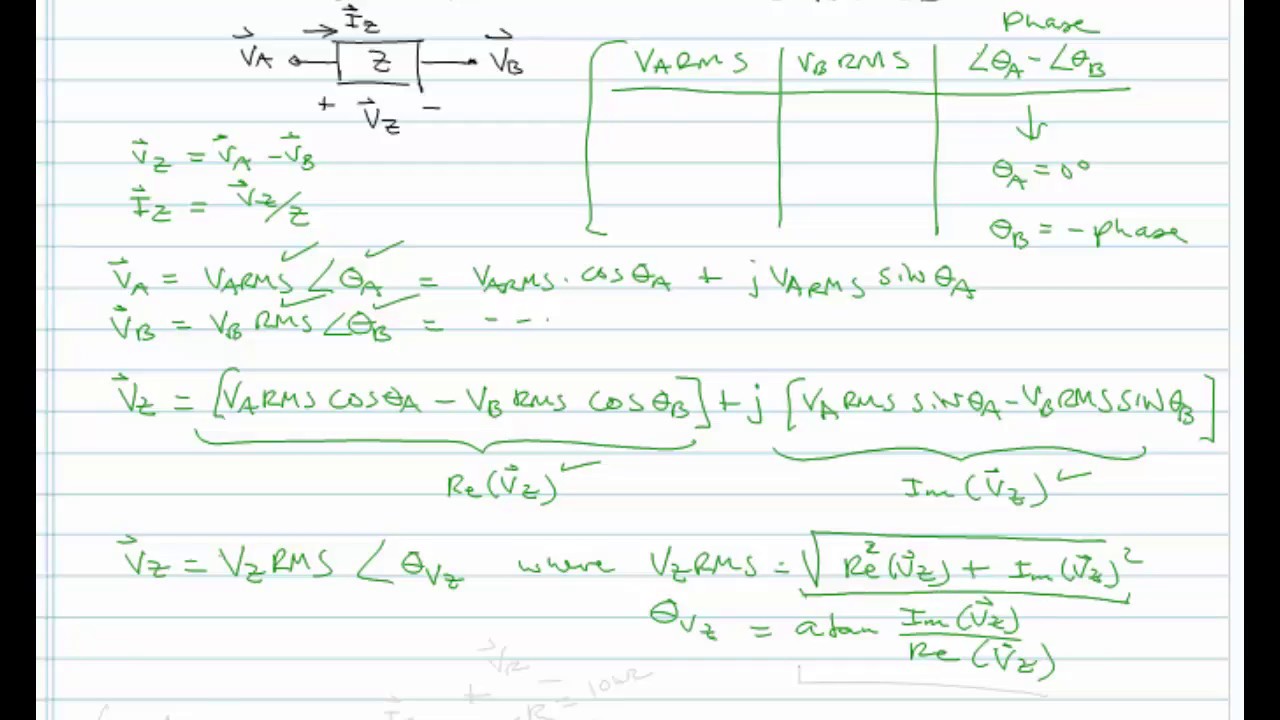 I⃗Z
Phase
V⃗A Z V⃗B
VARMS VBRMS ∠θA - ∠θB
+ V⃗Z -
V⃗Z = V⃗A - V⃗B
θA = 0°
I⃗Z = V⃗Z/Z
θB = - phase
V⃗A = VARMS ∠θA = VARMS · cos θA + j VARMS sin θA
V⃗B = VB RMS ∠θB = - - ·
V⃗Z = [VARMS cos θA - VB RMS cos θB] + j [VARMS sin θA - VBRMS sin θB]
Re(V⃗Z) Im(V⃗Z)
V⃗Z = VZRMS ∠θVZ where VZRMS = √Re²(V⃗Z) + Im(V⃗Z)²
θVZ = atan Im(V⃗Z)
Re(V⃗Z)
V⃗R
+ -